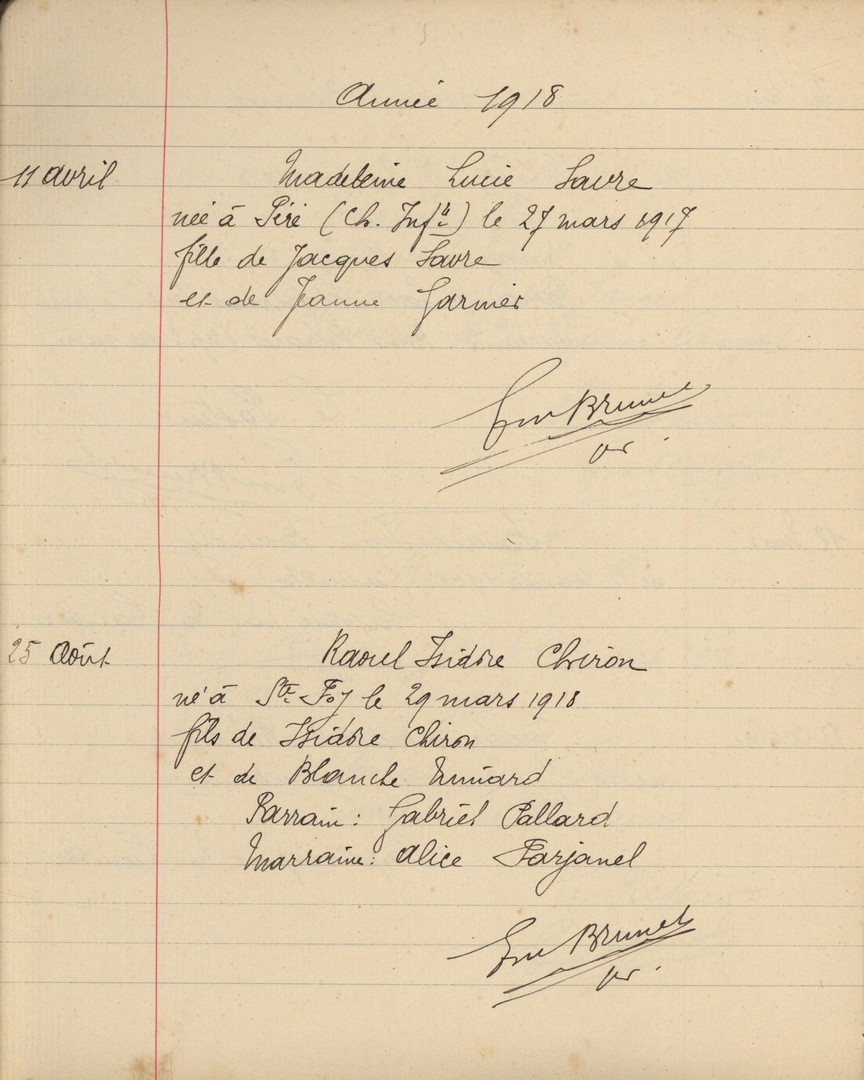 Année 1918
11 avril Madeleine Lucie Favre
née à Péré (Ch. Infre) le 27 mars 1917
fille de Jacques Favre
et de Jeanne Garnier
Em Brunet
pr.
25 Août Raoul Isidore Chiron
né à Ste Foy le 29 mars 1918
fils de Isidore Chiron
et de Blanche
Parrain : Gabriel Pallard
Marraine : Alice Farjanel
Em Brunet
pr.